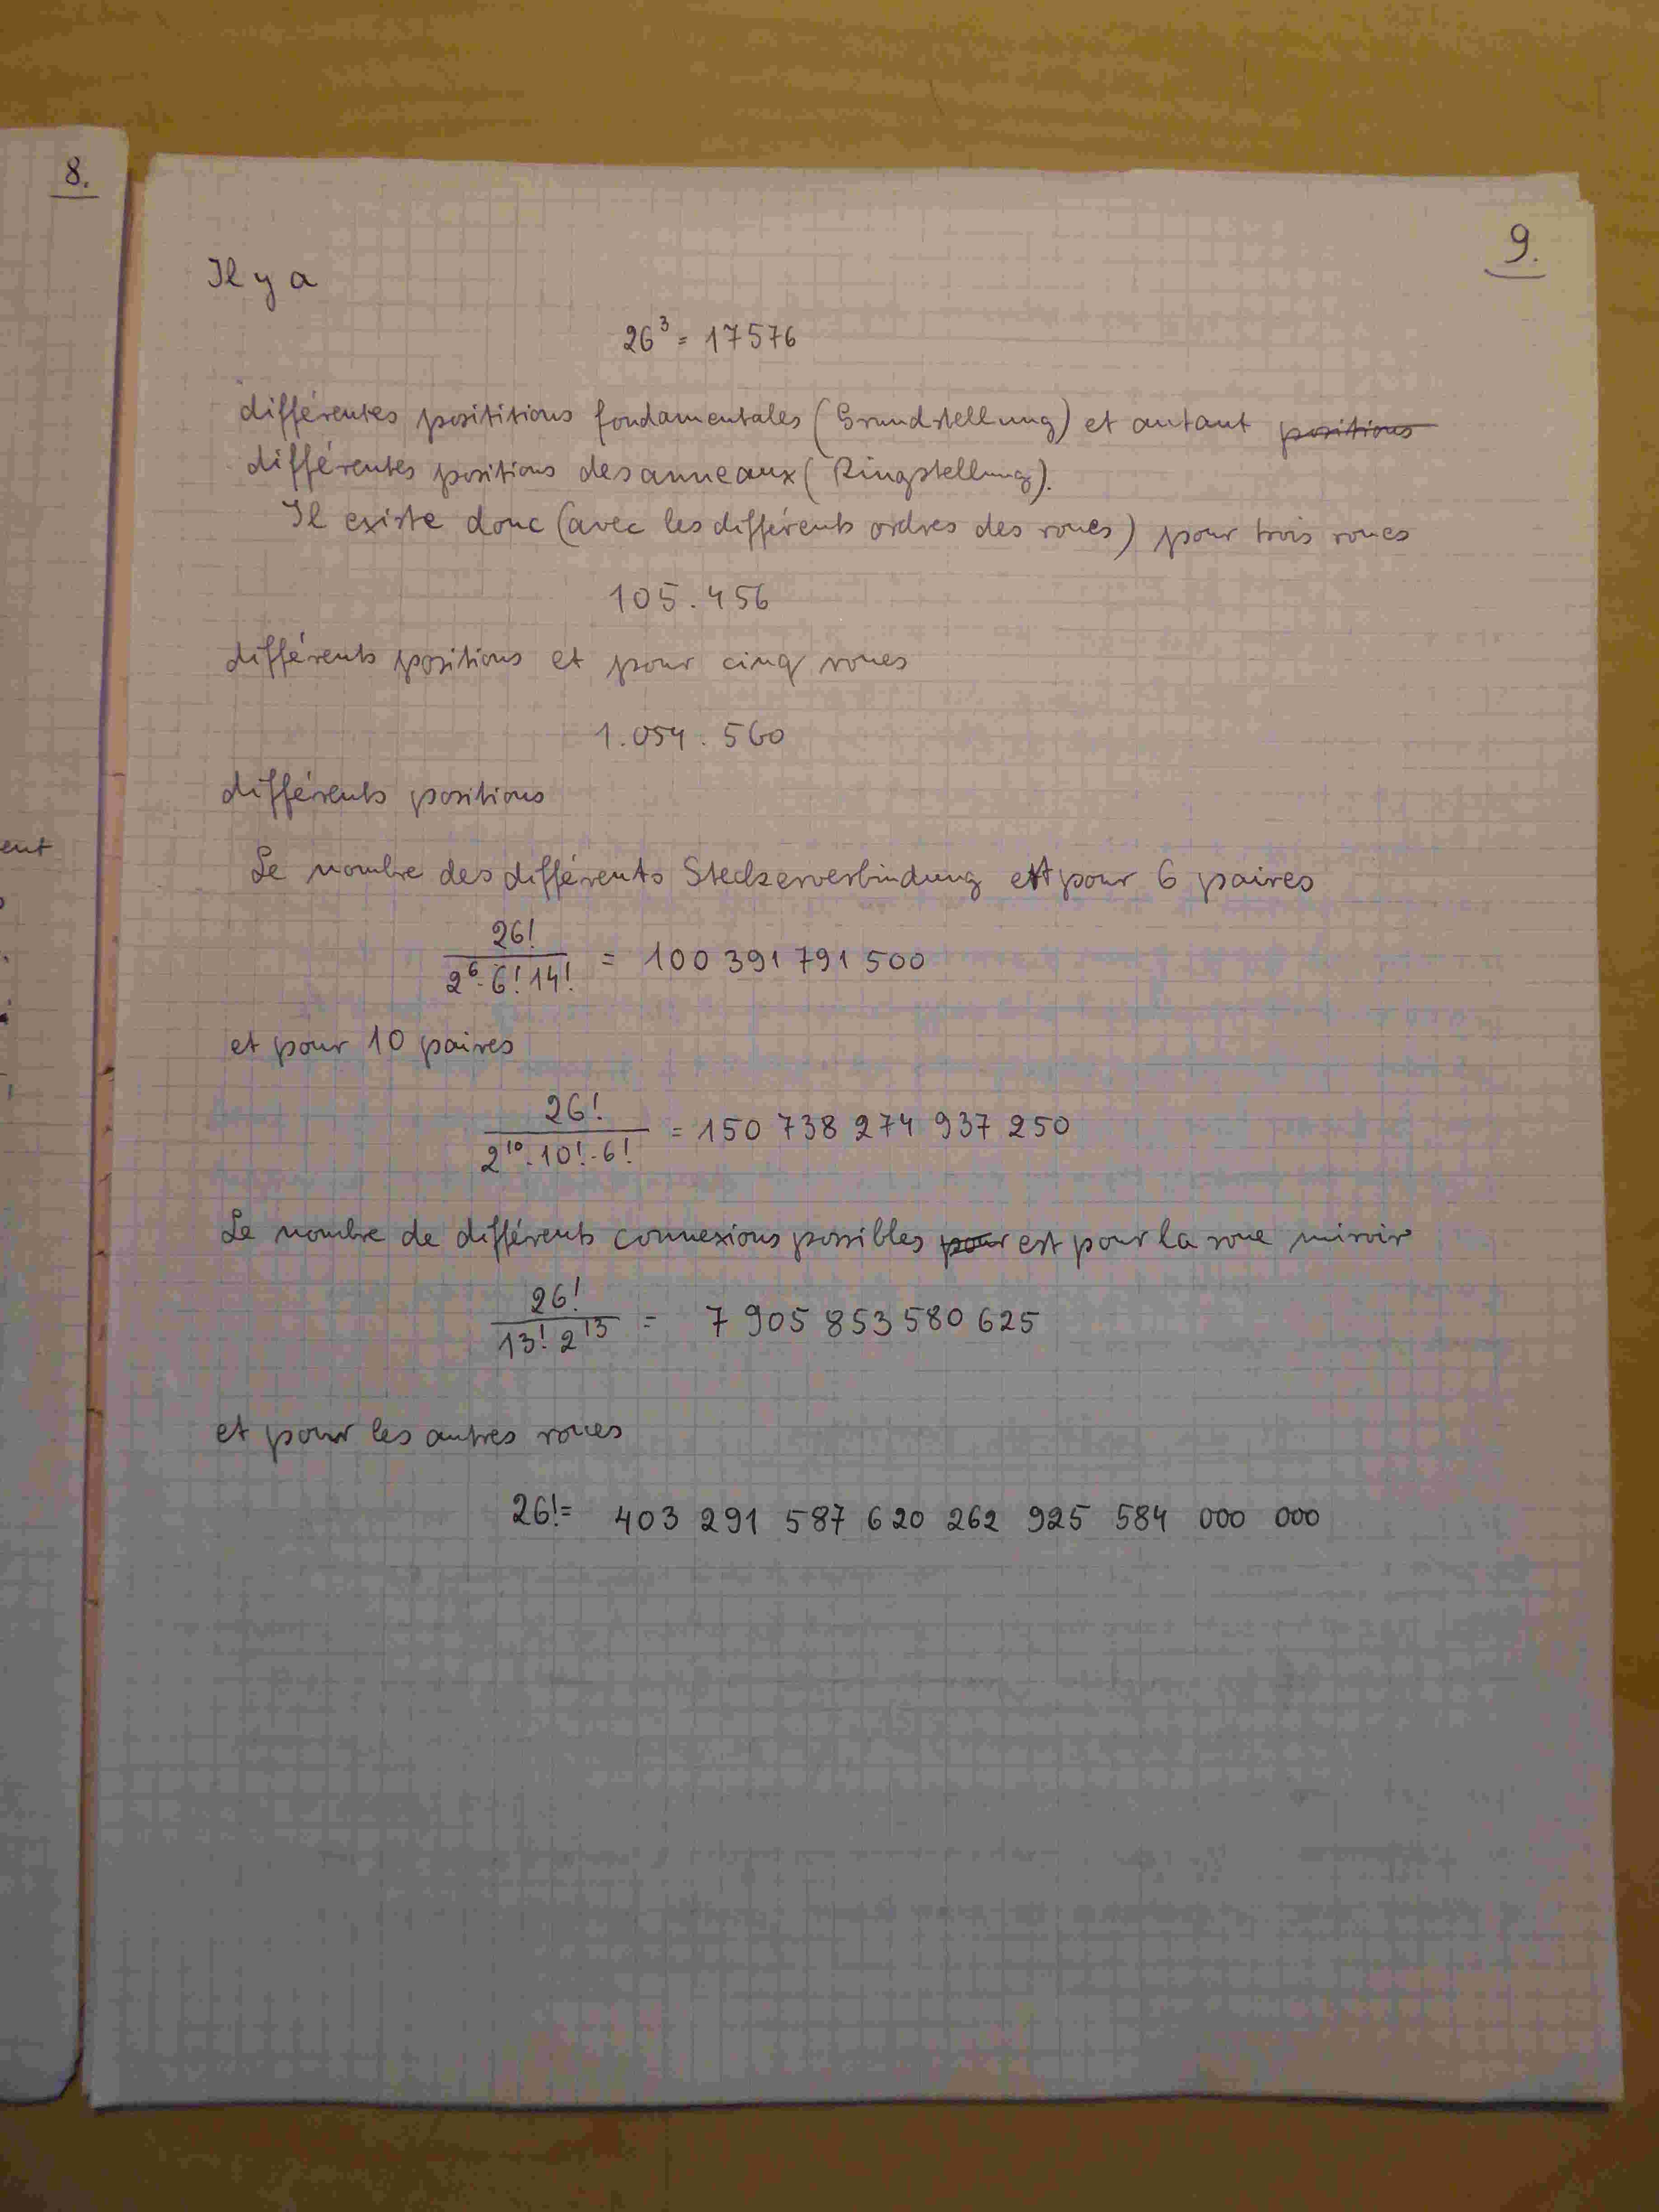 8.
9.
Il y a
26³ = 17576
différentes posititions fondamentales (Grundstellung) et autant positions
différentes positions des anneaux (Ringstellung).
Il existe donc (avec les différents ordres des roues) pour trois roues
105.456
différents positions et pour cinq roues
1.054.560
différents positions
ent
Le nombre des différents Steckerverbindung est pour 6 paires
26! / 2⁶·6!14! = 100 391 791 500
et pour 10 paires
26! / 2¹⁰·10!·6! = 150 738 274 937 250
Le nombre de différents connexions possibles pour est pour la roue miroir
26! / 13! 2¹³ = 7 905 853 580 625
et pour les autres roues
26! = 403 291 587 620 262 925 584 000 000